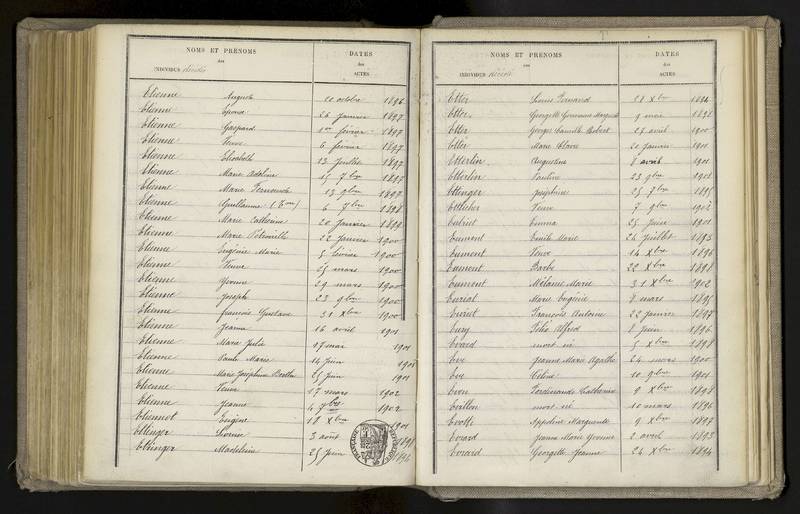 NOMS ET PRÉNOMS
des
INDIVIDUS décédés
DATES
des
ACTES
Etienne Auguste 20 octobre 1896
Etienne 26 janvier 1897
Etienne Gaspard 1er février 1897
Etienne Veuve 6 février 1897
Etienne Elisabeth 13 juillet 1897
Etienne Marie Adeline 15 7bre 1897
Etienne Marie Fernande 13 9bre 1897
Etienne Guillaume 6 7bre 1898
Etienne Marie Catherine 20 janvier 1899
Etienne Marie Pétronille 22 janvier 1900
Etienne Eugénie Marie 5 février 1900
Etienne Veuve 25 mars 1900
Etienne Yvonne 29 mars 1900
Etienne Joseph 23 9bre 1900
Etienne François Gustave 31 Xbre 1900
Etienne Jeanne 16 avril 1901
Etienne Marie Julie 17 mai 1901
Etienne Paule Marie 14 juin 1901
Etienne Marie Joséphine Berthe 25 juin 1901
Etienne Veuve 17 mars 1902
Etienne Jeanne 4 7bre 1902
Etiennot Eugène 18 Xbre 1901
Ettinger 3 août 1891
Ettinger Madeleine 25 juin 1896
NOMS ET PRÉNOMS
des
INDIVIDUS décédés
DATES
des
ACTES
Etter Louis Fernand 28 Xbre 1894
Etter Georgette Germaine Marguerite 9 mai 1898
Etter Georges Camille Robert 25 avril 1900
Etter Marie Claire 20 janvier 1901
Etterlin Augustine 8 avril 1901
Etterlin Pauline 23 9bre 1901
Ettinger Joséphine 25 7bre 1895
Ettlicher Veuve 7 9bre 1902
Emma 25 juin 1901
Eumont Emile Marie 24 juillet 1895
Eumont Veuve 14 Xbre 1896
Eumont Barbe 22 Xbre 1898
Eumont Mélanie Marie 31 Xbre 1902
Euriat Marie Eugénie 9 mars 1895
Euriet François Antoine 22 janvier 1897
Eury Félix Alfred 8 juin 1896
Evard mort né 5 Xbre 1898
Eve Jeanne Marie Agathe 24 mars 1900
Eve Céline 10 9bre 1901
Evon Ferdinande Catherine 9 Xbre 1898
Evillon mort né 10 mars 1896
Evotti Appoline Marguerite 9 Xbre 1897
Evrard Jeanne Marie Yvonne 2 avril 1893
Evrard Georgette Jeanne 24 Xbre 1894